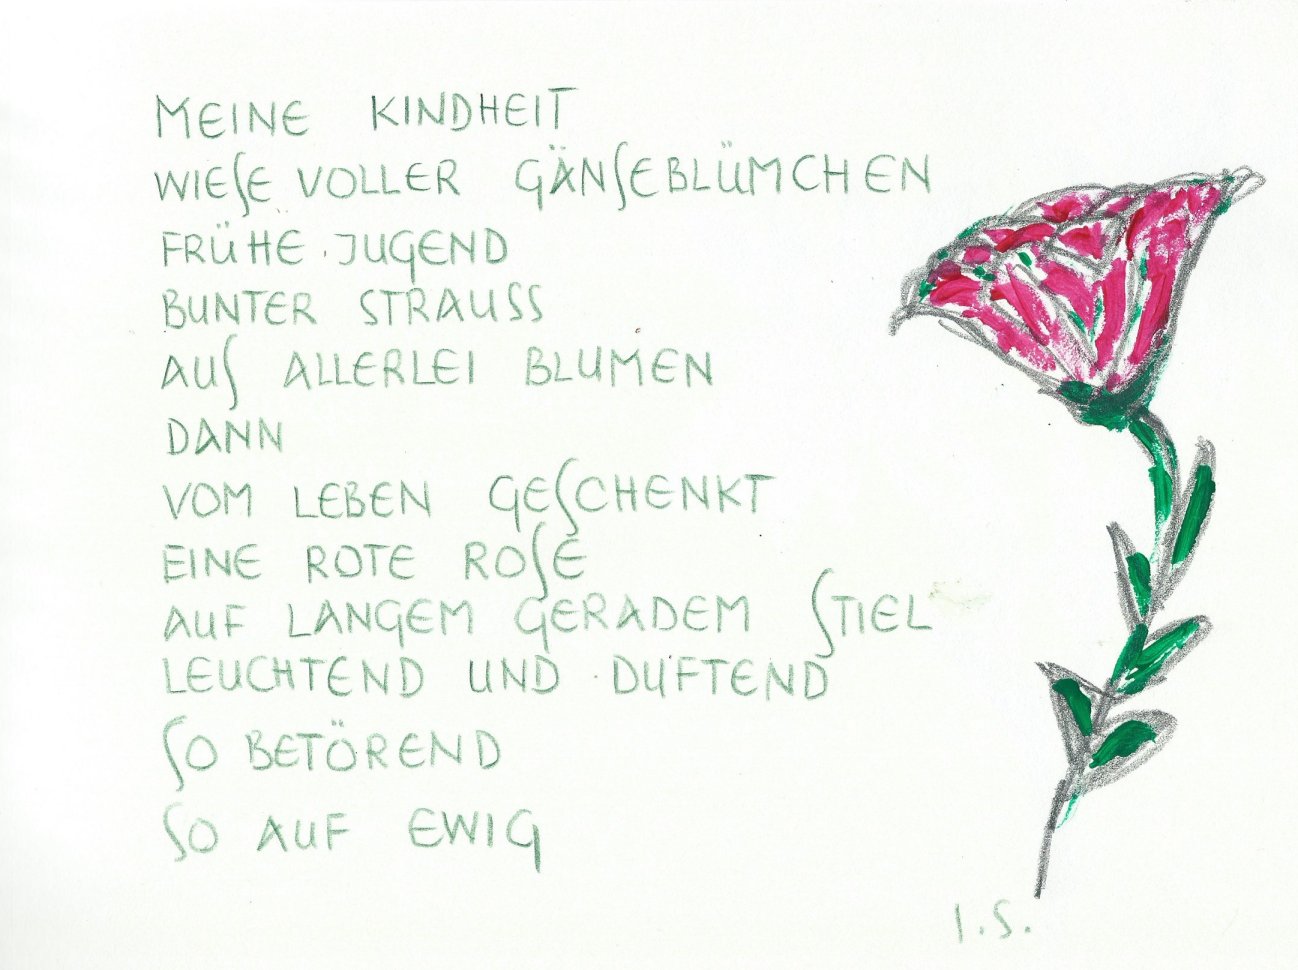 MEINE KINDHEIT
WIESE VOLLER GÄNSEBLÜMCHEN
FRÜHE JUGEND
BUNTER STRAUSS
AUS ALLERLEI BLUMEN
DANN
VOM LEBEN GESCHENKT
EINE ROTE ROSE
AUF LANGEM GERADEM STIEL
LEUCHTEND UND DUFTEND
SO BETÖREND
SO AUF EWIG
I.S.